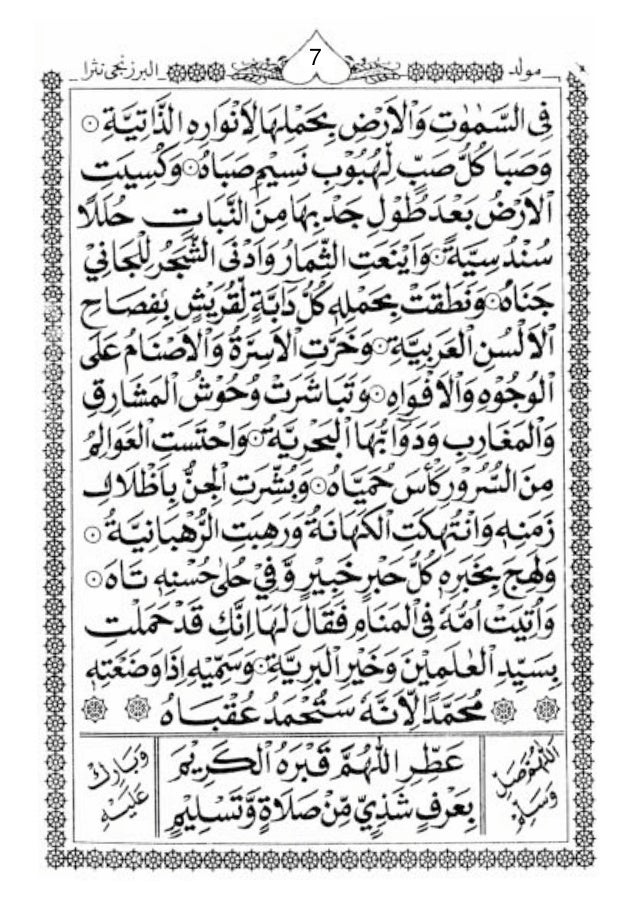 مولد
7
البرزنجى نثرا
فِى السَّمٰوٰتِ وَالْاَرْضِ بِحَمْلِهَا لِاَنْوَارِهِ الذَّاتِيَّةِ ۞
وَصَبَا كُلُّ صَبٍّ لِّهُبُوْبِ نَسِيْمِ صَبَاهُ ۞ وَكُسِيَتِ
الْاَرْضُ بَعْدَ طُوْلِ جَدْبِهَا مِنَ النَّبَاتِ حُلَلًا
سُنْدُسِيَّةً ۞ وَاَيْنَعَتِ الثِّمَارُ وَاَدْنَى الشَّجَرُ لِلْجَانِيْ
جَنَاهُ ۞ وَنَطَقَتْ بِحَمْلِهٖ كُلُّ دَآبَّةٍ لِّقُرَيْشٍ بِفِصَاحِ
الْاَلْسُنِ الْعَرَبِيَّةِ ۞ وَخَرَّتِ الْاَسِرَّةُ وَالْاَصْنَامُ عَلَى
الْوُجُوْهِ وَالْاَفْوَاهِ ۞ وَتَبَاشَرَتْ وُحُوْشُ الْمَشَارِقِ
وَالْمَغَارِبِ وَدَوَآبُّهَا الْبَحْرِيَّةُ ۞ وَاحْتَسَتِ الْعَوَالِمُ
مِنَ السُّرُوْرِ كَأْسَ حُمَيَّاهُ ۞ وَبُشِّرَتِ الْجِنُّ بِاِظْلَالِ
زَمَنِهٖ وَانْتُهِكَتِ الْكَهَانَةُ وَرَهِبَتِ الرَّهْبَانِيَّةُ ۞
وَلَهِجَ بِخَبَرِهٖ كُلُّ حَبْرٍ خَبِيْرٍ وَّفِيْ حُلٰى حُسْنِهٖ تَاهَ ۞
وَاُتِيَتْ اُمُّهٗ فِى الْمَنَامِ فَقَالَ لَهَا اِنَّكِ قَدْ حَمَلْتِ
بِسَيِّدِ الْعٰلَمِيْنَ وَخَيْرِ الْبَرِيَّةِ ۞ وَسَمِّيْهِ اِذَا وَضَعْتِهٖ
مُحَمَّدًا لِاَنَّهٗ سَتُحْمَدُ عُقْبَاهُ
اَللّٰهُمَّ صَلِّ
وَسَلِّمْ
عَطِّرِ اللّٰهُمَّ قَبْرَهُ الْكَرِيْمَ
بِعَرْفٍ شَذِيٍّ مِّنْ صَلَاةٍ وَّتَسْلِيْمٍ
وَبَارِكْ
عَلَيْهِ